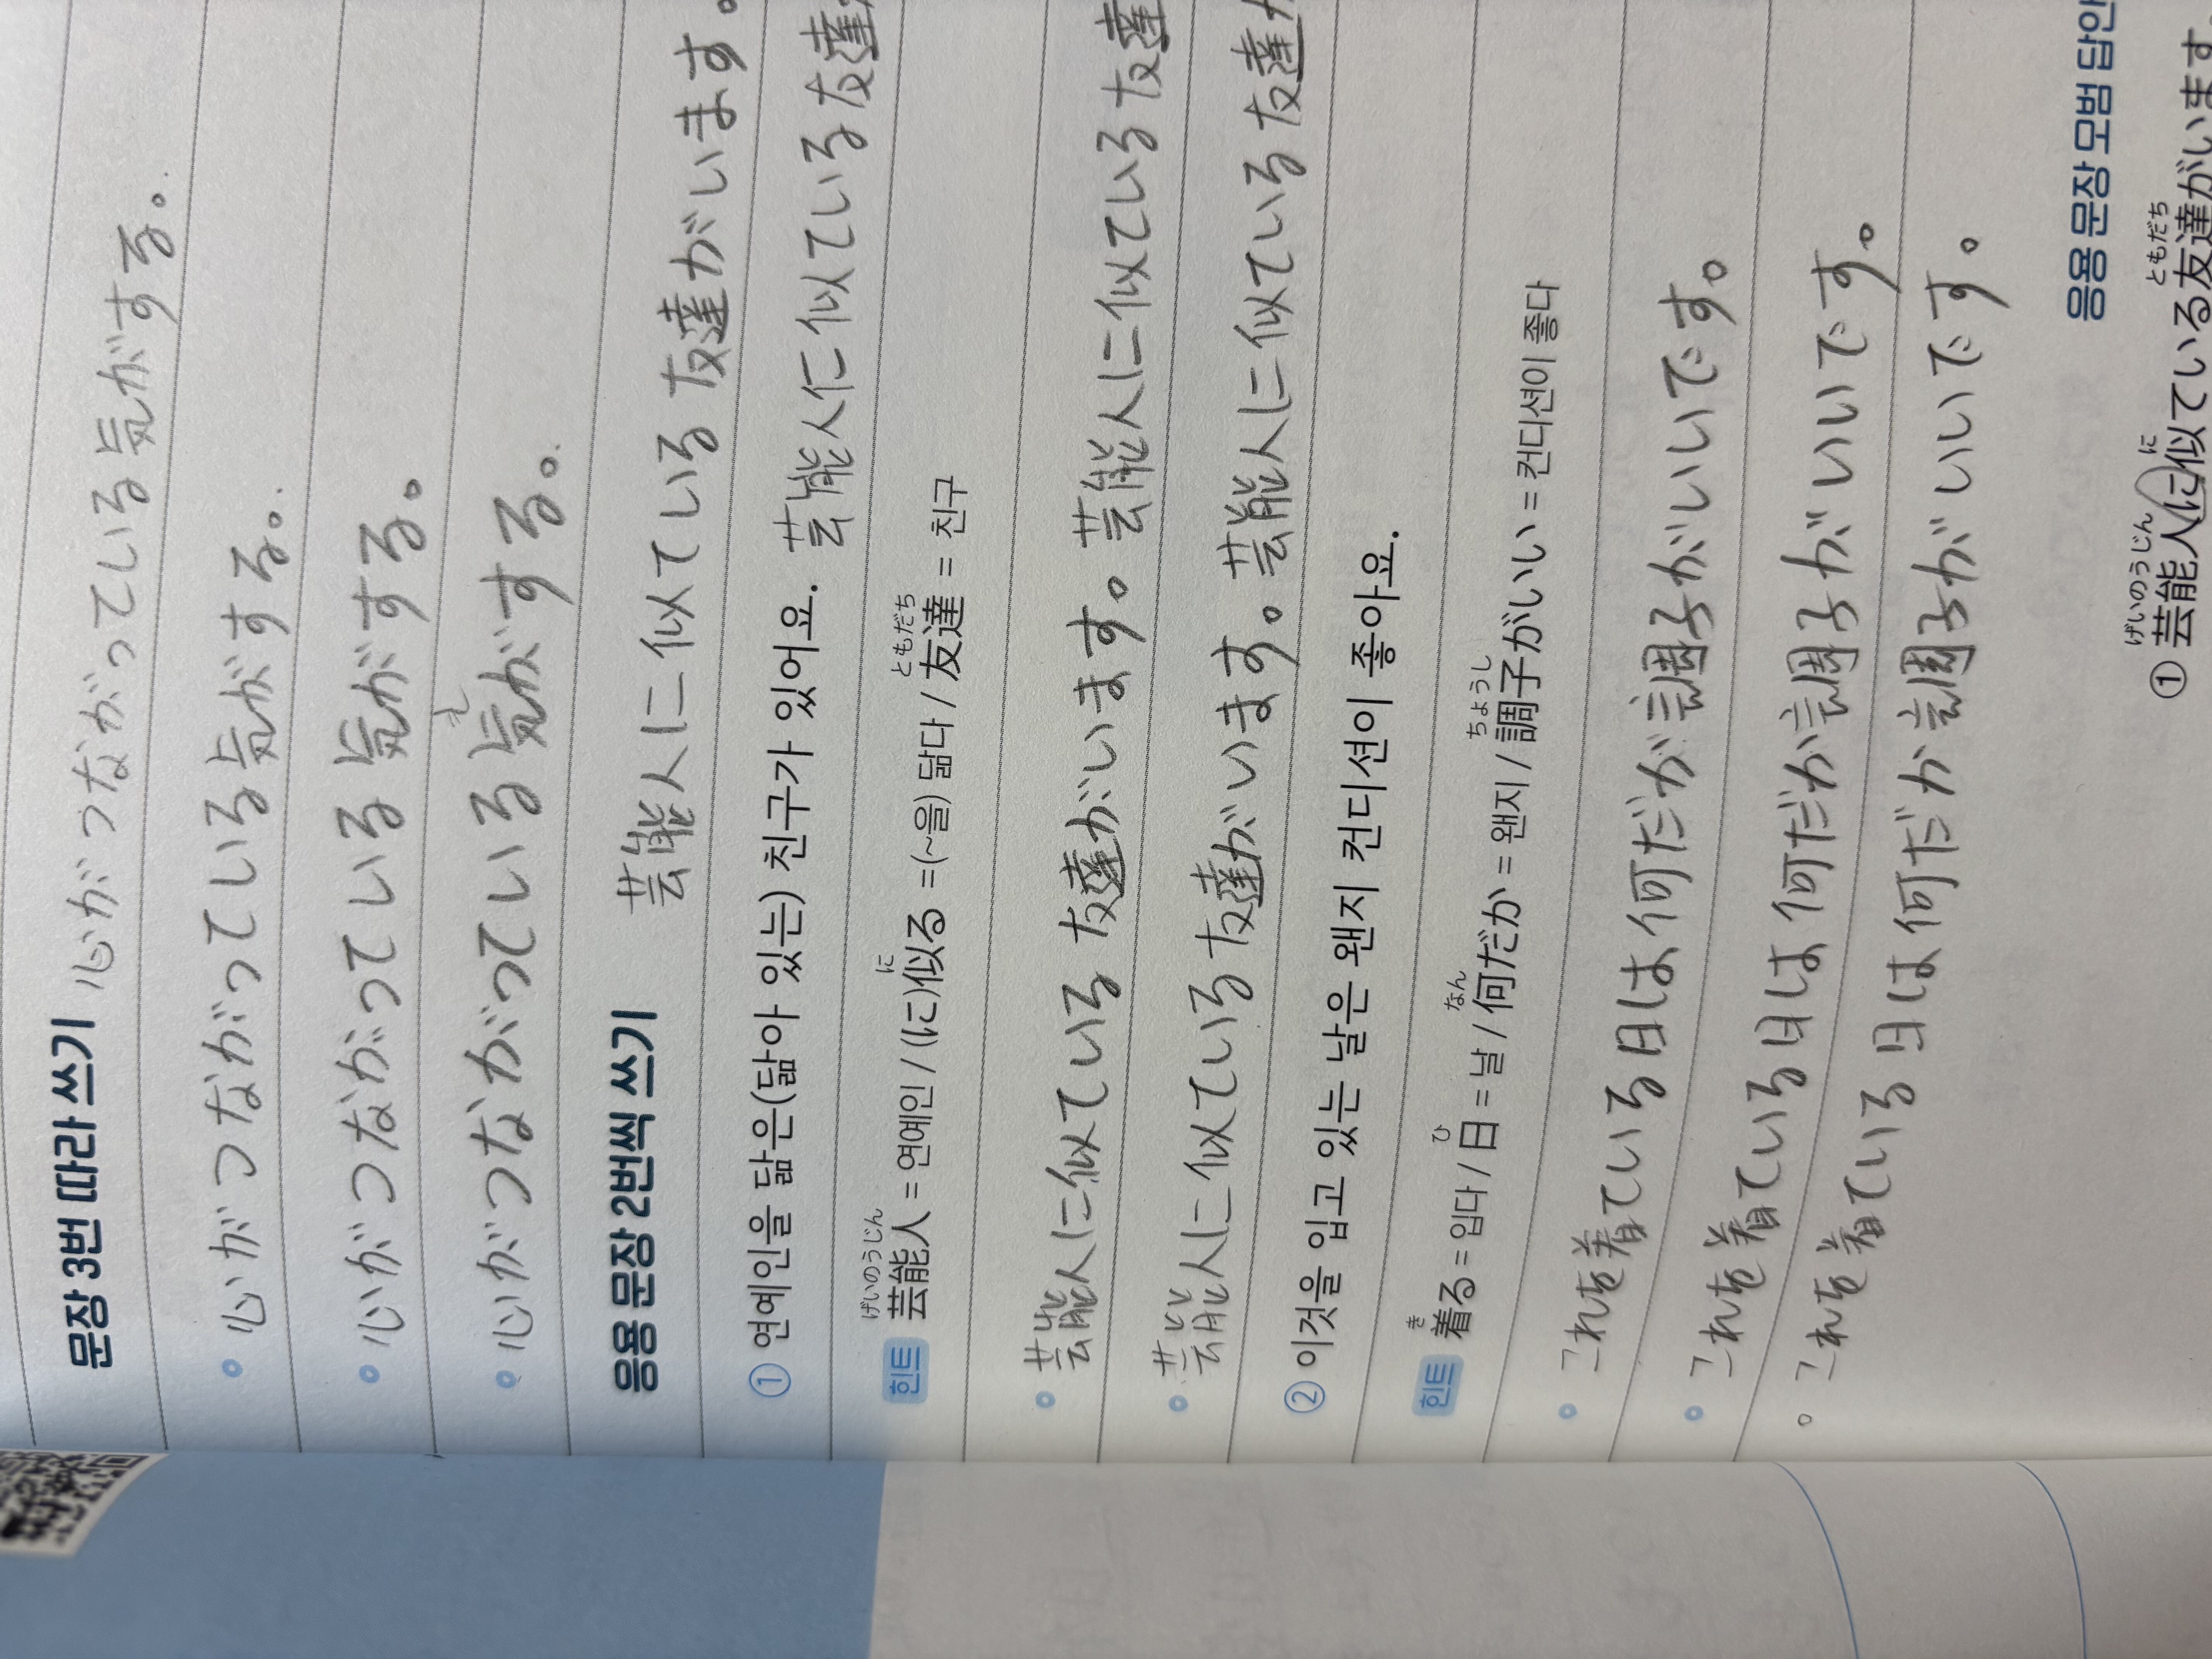 문장 3번 따라 쓰기 心がつながっている気がする。
心がつながっている気がする。
心がつながっている気がする。
き
心がつながっている気がする。
응용 문장 2번씩 쓰기 芸能人に似ている友達がいます。
① 연예인을 닮은(닮아 있는) 친구가 있어요. 芸能人に似ている友達
げいのうじん に ともだち
힌트 芸能人 = 연예인 / (に)似る =(~을) 닮다 / 友達 = 친구
芸能人に似ている友達がいます。芸能人に似ている友達
芸能人に似ている友達がいます。芸能人に似ている友達
② 이것을 입고 있는 날은 왠지 컨디션이 좋아요.
き ひ なん ちょうし
힌트 着る = 입다 / 日 = 날 / 何だか = 왠지 / 調子がいい = 컨디션이 좋다
これを着ている日は何だが調子がいいです。
これを着ている日は何だか調子がいいです。
これを着ている日は何だか調子がいいです。
응용 문장 모범 답안
げいのうじん に ともだち
① 芸能人に似ている友達がいます